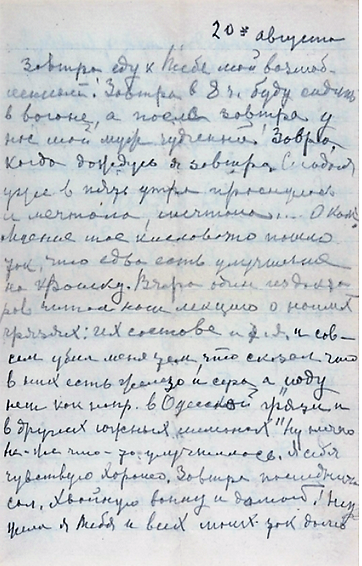 20го августа
Завтра еду к Тебе мой возлюб-
ленный! Завтра в 8 ч. буду сидеть
в вагоне, а после завтра у
нас мой муж чудесный! Завтра,
когда дождусь я завтра. Сегодня
уже в пять утра проснулась
и мечтала, мечтала...
мое кисловато пошло
так, что едва есть улучшение
на крошку. Вчера один из докто-
ров читал нам лекцию о наших
грязях: их составе и т.д. и сов-
сем убил меня тем, что сказал что
в них есть железо и сера, а иоду
нет как напр. в Одесской грязи и
в других южных лиманах. Ну ничего
все-же что-то улучшилось. Я себя
чувствую хорошо. Завтра последний раз
сол. хвойную ванну и домой!
я Тебя и всех моих так долго